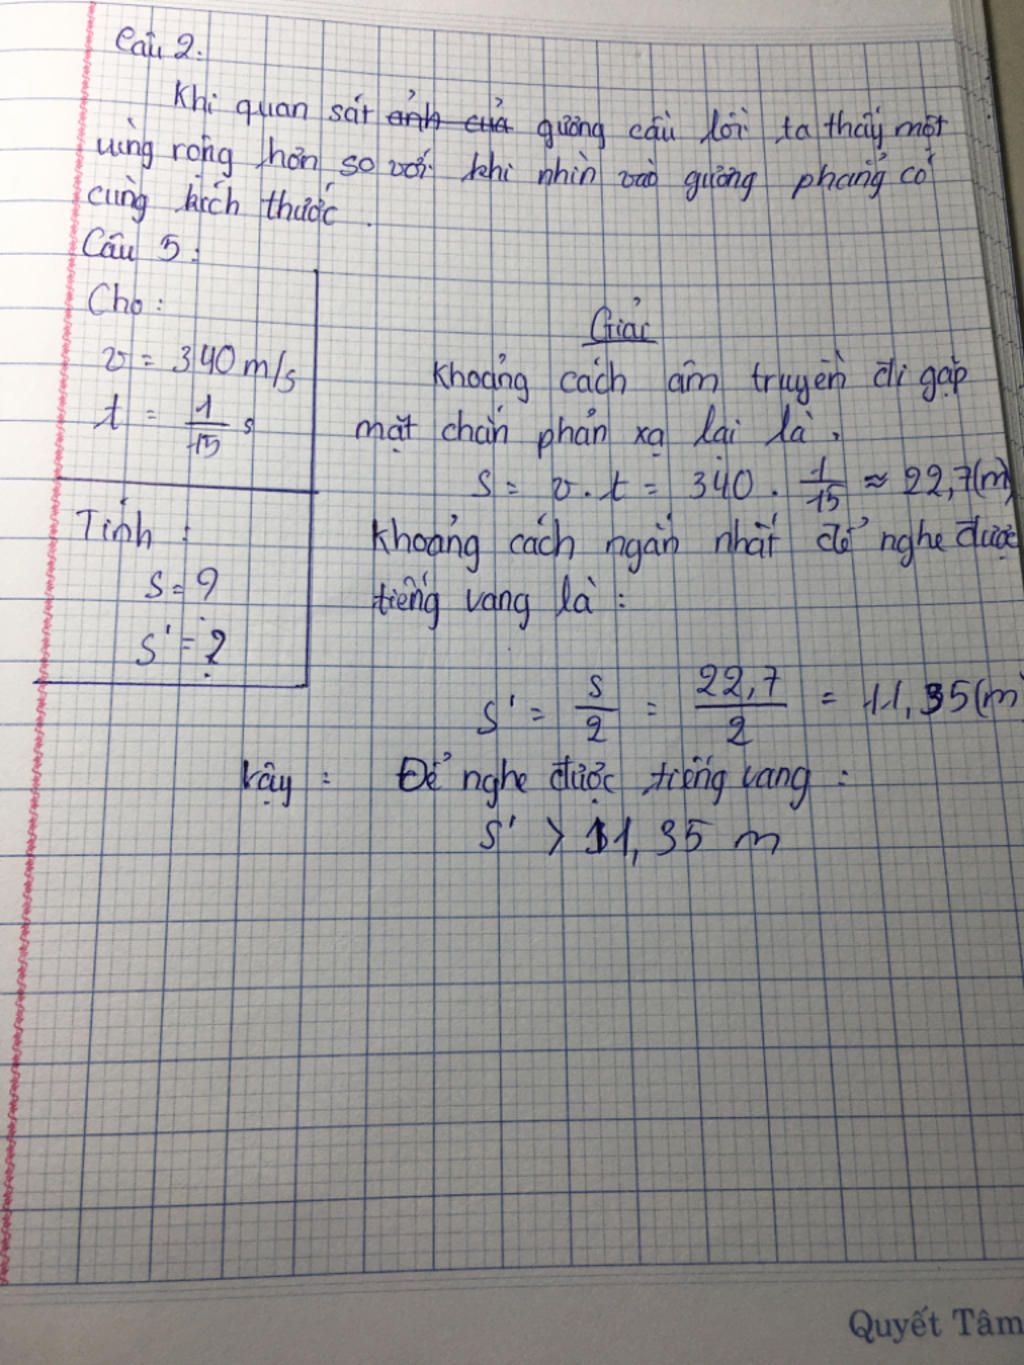 Câu 2:
Khi quan sát ảnh của gương cầu lồi ta thấy một
vùng rộng hơn so với khi nhìn vào gương phẳng có
cùng kích thước.
Câu 5:
Cho:
v = 340 m/s
t = 1/15 s
Tính:
S = ?
S' = ?
Giải
Khoảng cách âm truyền đi gặp
mặt chắn phản xạ lại là,
S = v.t = 340 . 1/15 ≈ 22,7(m)
Khoảng cách ngắn nhất để nghe được
tiếng vang là:
S' = S/2 = 22,7/2 = 11,35(m
Vậy: Để nghe được tiếng vang:
S' > 11,35 m
Quyết Tâm